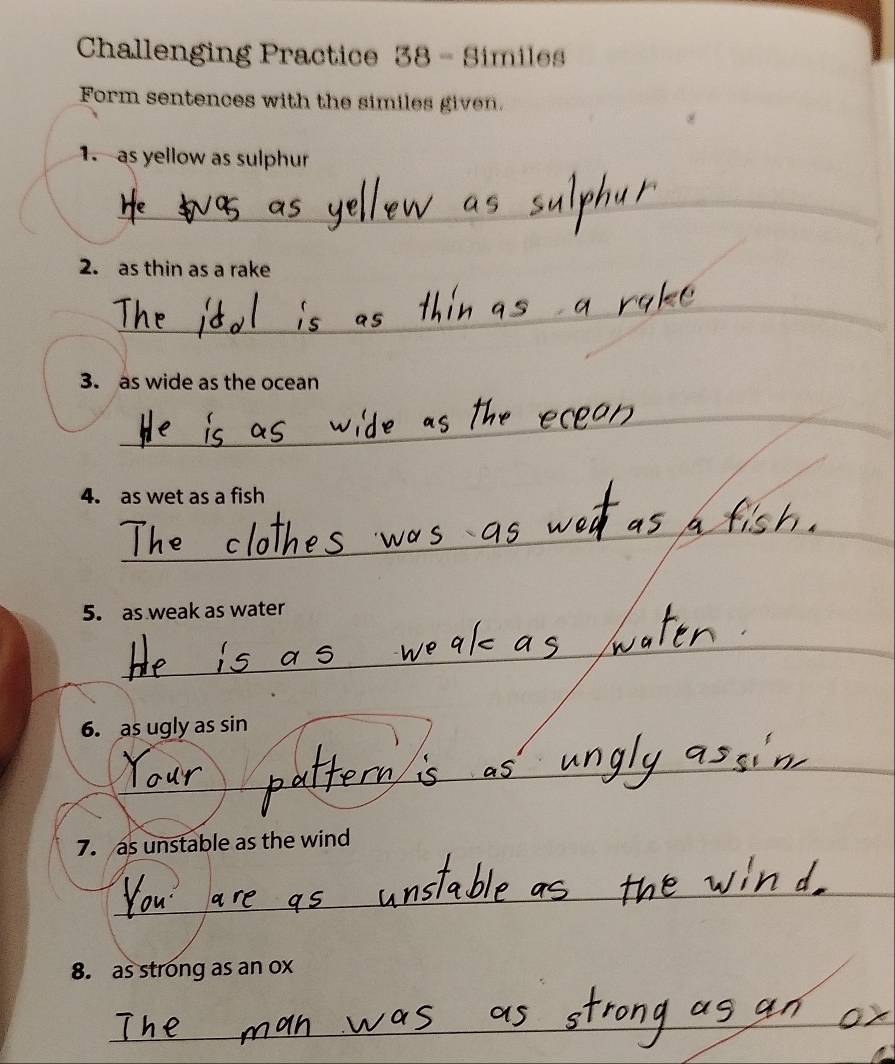 Challenging Practice 38 - Similes
Form sentences with the similes given.
1. as yellow as sulphur
He was as yellew as sulphur
2. as thin as a rake
The idol is as thin as a rake
3. as wide as the ocean
He is as wide as the eceon
4. as wet as a fish
The clothes was as wet as a fish.
5. as weak as water
He is as weak as water.
6. as ugly as sin
Your pattern is as ungly as sin
7. as unstable as the wind
You are as unstable as the wind.
8. as strong as an ox
The man was as strong as an ox